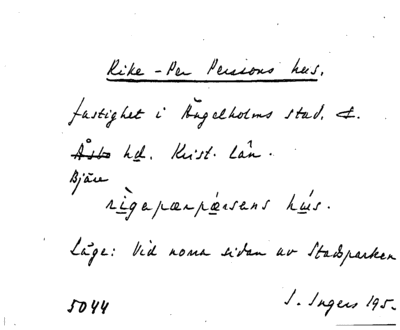 Rike-Per Perssons hus.
fastighet i Ängelholms stad, &.
Åsbo hd. Krist. län.
Bjäre
rìgepærpǽrsens hús.
Läge: Vid norra sidan av Stadsparken
5044
I. Ingers 195